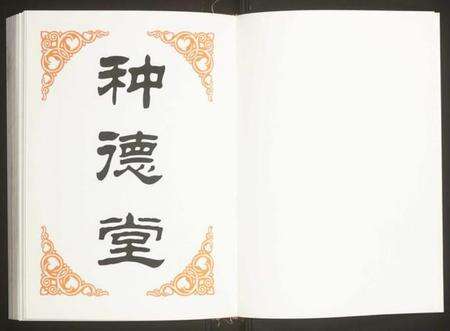 种德堂